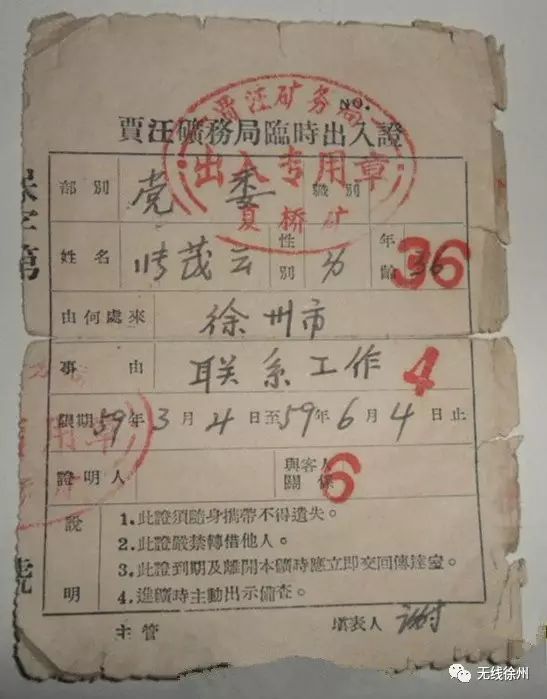 NO.
賈汪礦務局臨時出入證
贾汪矿务局
出入专用章
夏桥矿
部別 党委 職別
姓名 茂云 性別 男 年齡 36
36
由何處來 徐州市
事由 联系工作
4
限期 59年3月4日至59年6月4日止
證明人 與客人關係
6
說明
1.此證須隨身攜帶不得遺失。
2.此證嚴禁轉借他人。
3.此證到期及離開本礦時應立即交回傳達室。
4.進礦時主動出示備查。
主管 填表人
无线徐州